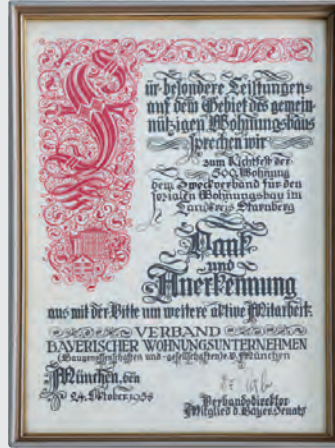 Für besondere Leistungen
auf dem Gebiet des gemein-
nützigen Wohnungsbaus
sprechen wir
zum Richtfest der
500. Wohnung
dem Zweckverband für den
sozialen Wohnungsbau im
Landkreis Starnberg
Dank
und
Anerkennung
aus mit der Bitte um weitere aktive Mitarbeit.
VERBAND
BAYERISCHER WOHNUNGSUNTERNEHMEN
(Baugenossenschaften und -gesellschaften) e.V. München
München, den
24. Oktober 1958
Verbandsdirektor
Mitglied d. Bayer. Senats